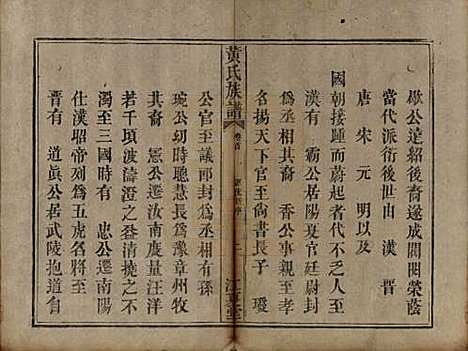 歇公達紹後裔遂成閥閱榮蔭
當代派衍後世由 漢 晉
唐 宋 元 明以及
國朝接踵而蔚起者代不乏人至
漢有 霸公居陽夏官廷尉
為丞相其裔 香公事親至孝
名揚天下官至尚書長子 瓊
黃氏族譜 卷首 江夏堂
公官至議郎封為丞相有孫
琬公幼時聰慧長為豫章州牧
其裔 憲公遷汝南慶量汪洋
若千頃波濤澄之不清淆之不
濁至三國時有 忠公遷南陽
仕漢昭帝列為五虎名將至
晉有 道真公居武陵抱道自